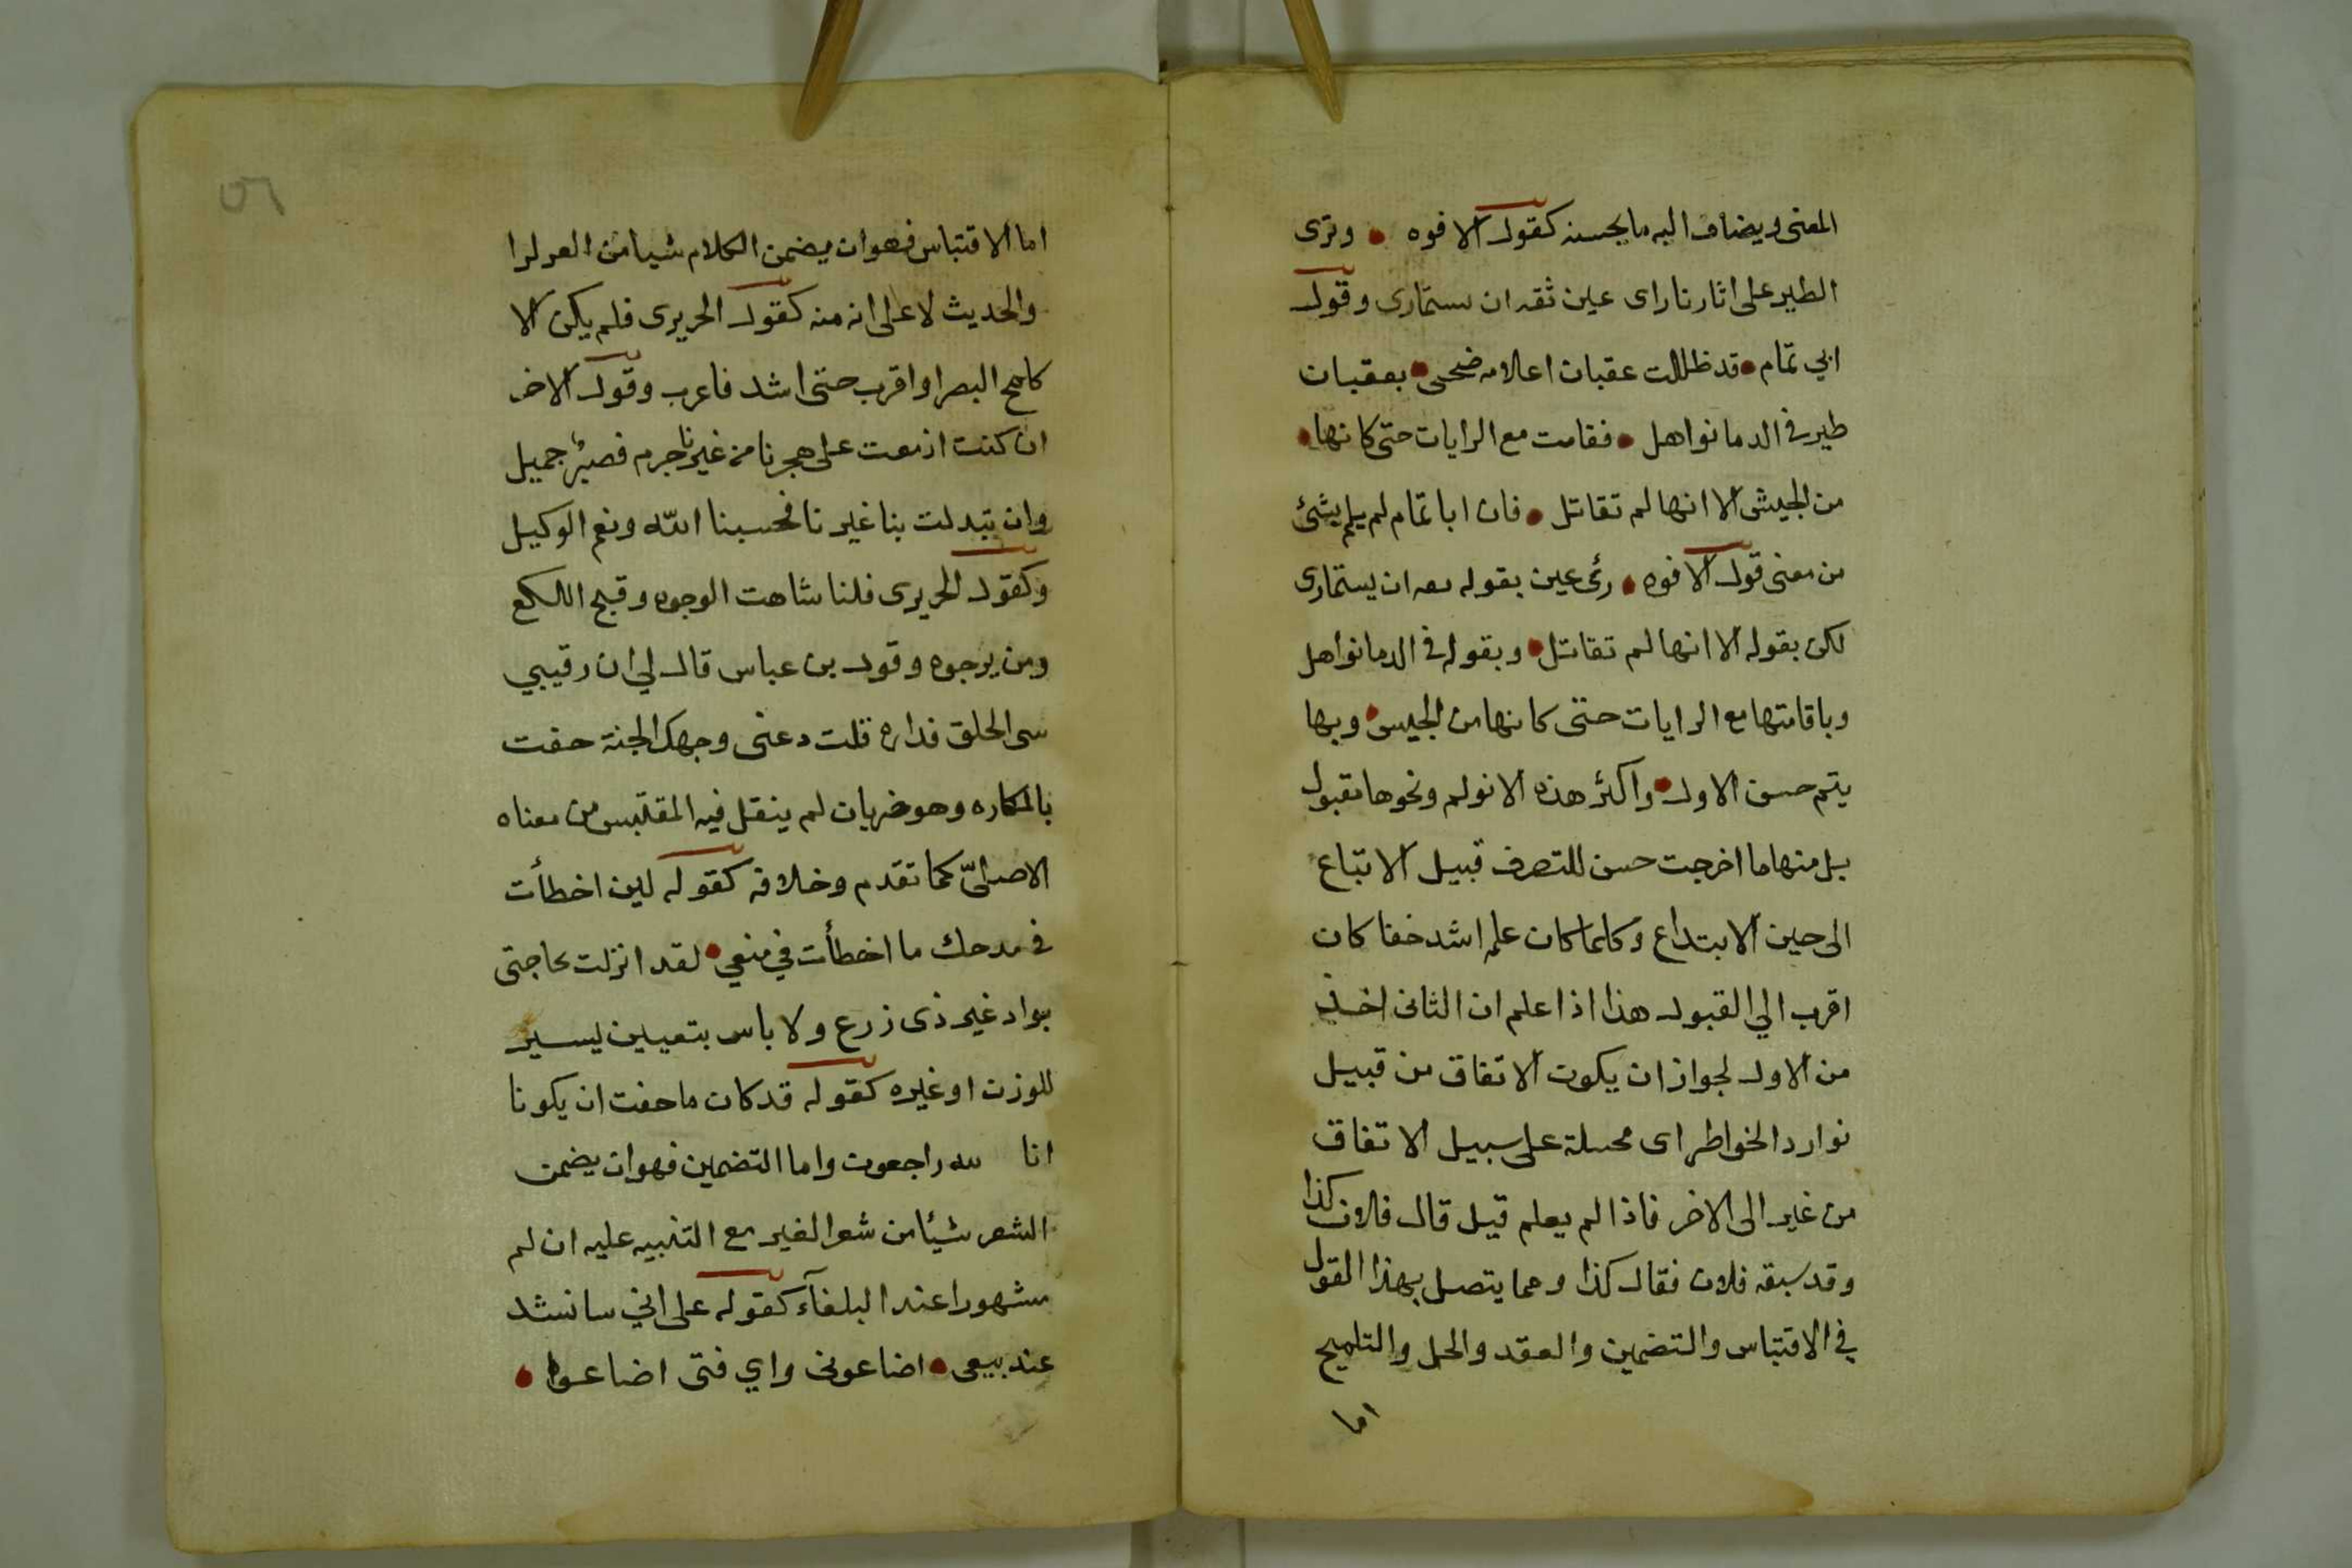 المعنى ويضاف اليه ما يحسنه كقول الافوه • وترى
الطير على اثارنا راى عين ثقه ان ستمارى وقول
ابي تمام • قد ظللت عقبان اعلامه ضحى • بعقبان
طير في الدما نواهل • فقامت مع الرايات حتى كانها •
من الجيش الا انها لم تقاتل • فان ابا تمام لم يلم بشئ
من معنى قول الافوه • رئى عين بقوله ثقه ان يستمارى
لكن بقوله الا انها لم تقاتل • وبقوله في الدما نواهل
وباقامتها مع الرايات حتى كانها من الجيش • وبها
يتم حسن الاول • واكثر هذه الانولم ونحوها مقبول
بل منها ما اخرجت حسن للتصرف قبيل الاتباع
الى حين الابتداع وكلما كان علمه اشد خفا كان
اقرب الي القبول هذا اذا علم ان الثانى اخذ
من الاول لجواز ان يكون الاتفاق من قبيل
نوارد الخواطر اى محيلة على سبيل الاتفاق
من غير الى الاخر فاذا لم يعلم قيل قال فلان كذا
وقد سبقه فلان فقال كذا ومما يتصل بهذا القول
في الاقتباس والتضمين والعقد والحل والتلميح
اما
٥٦
اما الاقتباس فهو ان يضمن الكلام شيا من القرلرا
والحديث لا على انه منه كقول الحريرى فلم يكن الا
كلمح البصر او اقرب حتى اشد فاعرب وقول الاخر
ان كنت ازمعت على هجرنا من غيرنا جرم فصبر جميل
وان تبدلت بنا غيرنا فحسبنا الله ونعم الوكيل
وكقول الحريرى فلنا شاهت الوجوه وقبح اللكع
ومن يرجوه وقول بن عباس قال لي ان رقيبي
سى الخلق فداره قلت دعنى وجهك الجنة حفت
بالمكاره وهو ضربان لم ينقل فيه المقتبس من معناه
الاصلىّ كما تقدم وخلافه كقوله لين اخطأت
في مدحك ما اخطأت في منعي • لقد انزلت حاجتى
بواد غير ذى زرع ولا باس بتعيين ليسير
للوزن او غيره كقوله قد كان ما خفت ان يكونا
انا لله راجعون واما التضمين فهو ان يضمن
الشعر شيئا من شعر الغير مع التنبيه عليه ان لم
مشهورا عند البلغآء كقوله على اني سانشد
عند بيعى • اضاعونى واي فتى اضاعوا •